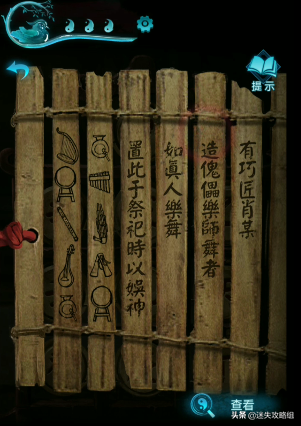 提示
有巧匠肖某
造傀儡樂師舞者
如真人樂舞
置此于祭祀時以娛神
查看
头条@迷失攻略组